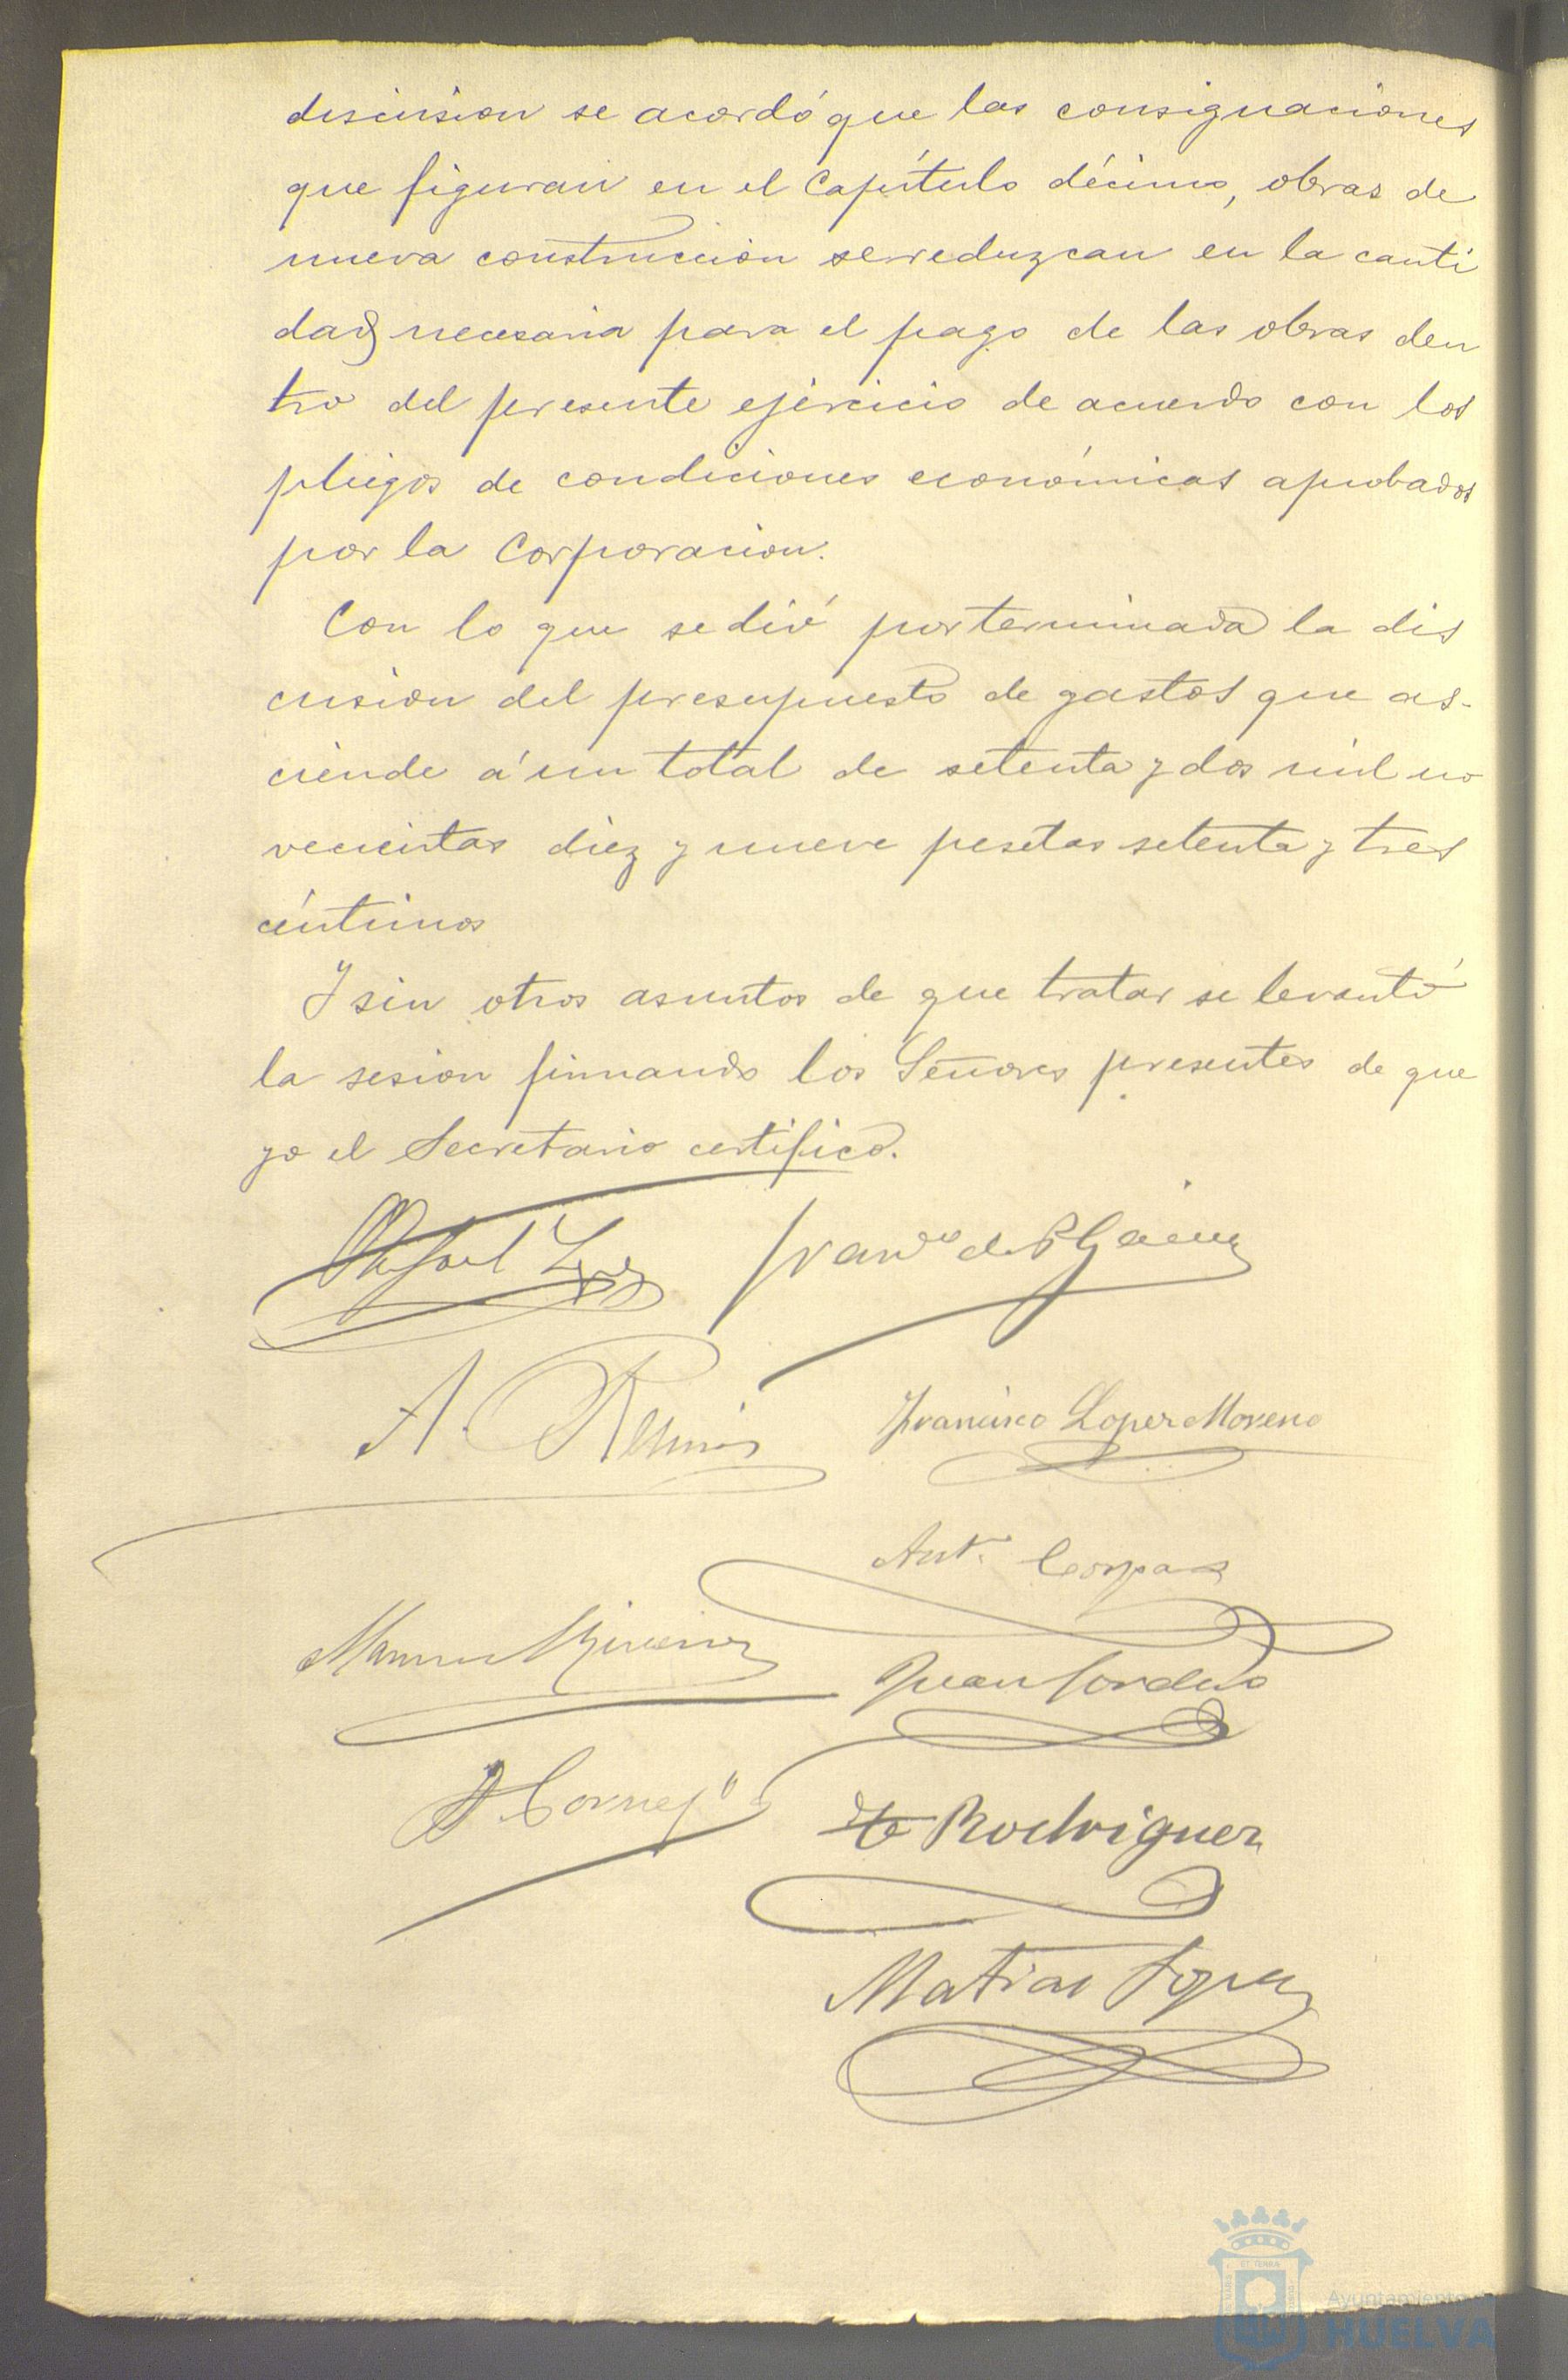 discusion se acordó que las consignaciones
que figuran en el Capítulo décimo, obras de
nueva construccion se reduzcan en la canti
dad necesaria para el pago de las obras den
tro del presente ejercicio de acuerdo con los
pliegos de condiciones económicas aprobados
por la Corporacion.
Con lo que se dió por terminada la dis
cusion del presupuesto de gastos que as-
ciende á un total de setenta y dos mil no
vecientas diez y nueve pesetas setenta y tres
céntimos
Y sin otros asuntos de que tratar se levantó
la sesion firmando los Señores presentes de que
yo el Secretario certifico.
Rafael
A.
Francisco Lopez Moreno
Antº
Juan Cordero
Cornejo
Rodriguez
Matias Lopez
Ayuntamiento
HUELVA